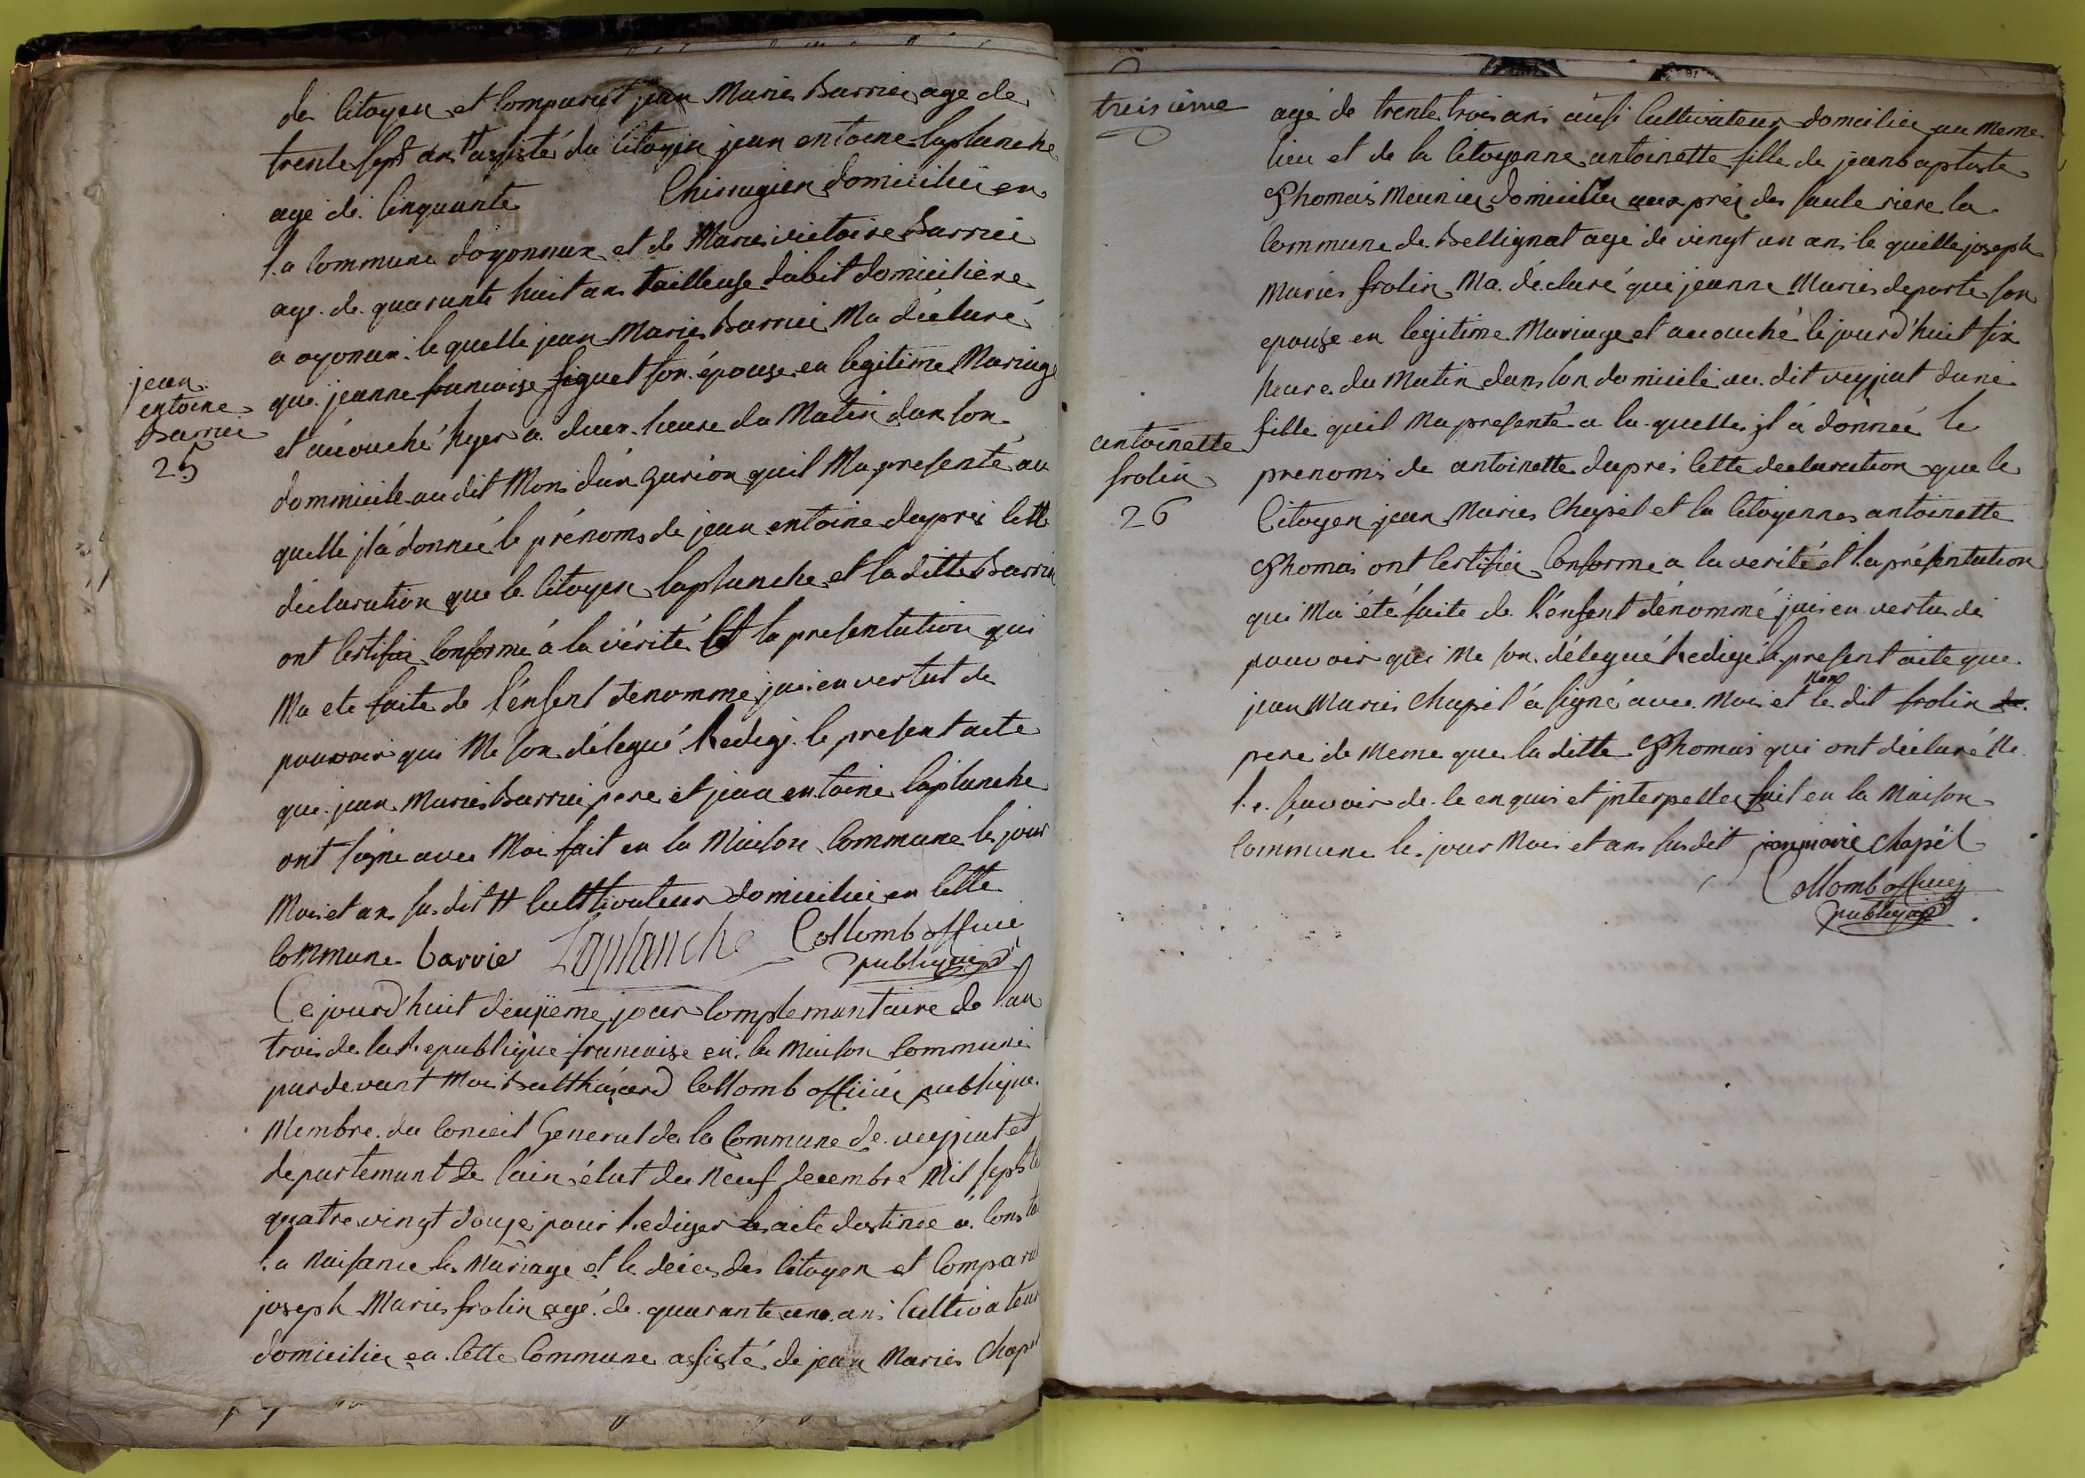 de Citoyen et Comparut jean Marie Barrier age de
trente sept ans # assisté du Citoyen jean entoine laplanche
agé de Cinquante Chirrugien domicilié en
la Commune doyonnax et de Marie victoire Barrier
age de quarante huit ans tailleuse dabit domiciliere
a oyonnax le quelle jean Marie Barrier Ma déclaré
que jeanne francoise figuet son épouse en legitime Mariage
et acouché hyer a deux heure du Matin dan son
dommicile au dit Mons d'un garçon quil Ma presenté au
quelle jl a donneé le prénoms de jean entoine dapres cette
déclaration que le Citoyen laplanche et la ditte Barrier
ont Certifier Conforme à la vérité et la presentation qui
Ma ete faite de l'enfent denommé jai en vertut de
pouvoir qui Me son délegué Redigé le present acte
que jean Marie Barrier pere et jean entoine laplanche
ont signe avec Moi fait en la Maison Commune le jour
Mois et ans susdit # Culttivateur domicilié en cette
Commune barrie Laplanche Collomb officié
publique
jean
entoine
Barrier
25
Ce jourd'huit deuxieme jour Complemantaire de l'an
trois de la Republique francaise en la Maison Commune
pardevant Moi Balthazard Collomb officié publique
Membre du Conseil General de la Commune de veyziat et
departemant de lain élut du Neuf decembre Mil sept C
quatre vingt douze pour Rediger les acte destinee a Consta
la Naisance les Mariage et le déces des Citoyen et Comparu
joseph Marie frolin agé de quarante un ans Cultivateur
domicilié en Cette Commune assisté de jean Marie Chapel
treisième
agé de trente trois ans ausi Cultivateur domicilié au Meme
lieu et de la Citoyenne antoinette fille de jean baptiste
Thomas Meunier domicillié aux prés des saule riere la
Commune de Bellignat age de vingt un ans le quelle joseph
Marie frolin Ma déclaré que jeanne Marie deporte son
epouse en legitime Mariage et acouché le jourd'huit six
heure du Matin dans son domicile au dit veyziat dune
fille quil Ma presenté a la quelle jl a donneé le
prenoms de antoinette dapres Cette declaration que le
Citoyen jean Marie Chapel et la Citoyenne antoinette
Thomas ont Certifier Conforme a la verité et la présentation
qui Ma été faite de l'enfent dénommé jai en vertu de
pouvoir qui Me son délegué Redigé le present acte que
jean Marie Chapel a signé avec Moi et Non le dit frolin de
pere de Meme que la ditte Thomas qui ont déclaré Ne
le savoir de Ce enquis et jnterpeller fait en la Maison
Commune les jour Mois et ans susdit jeanmarie chapel
Collomb officié
publique
antoinette
frolin
26